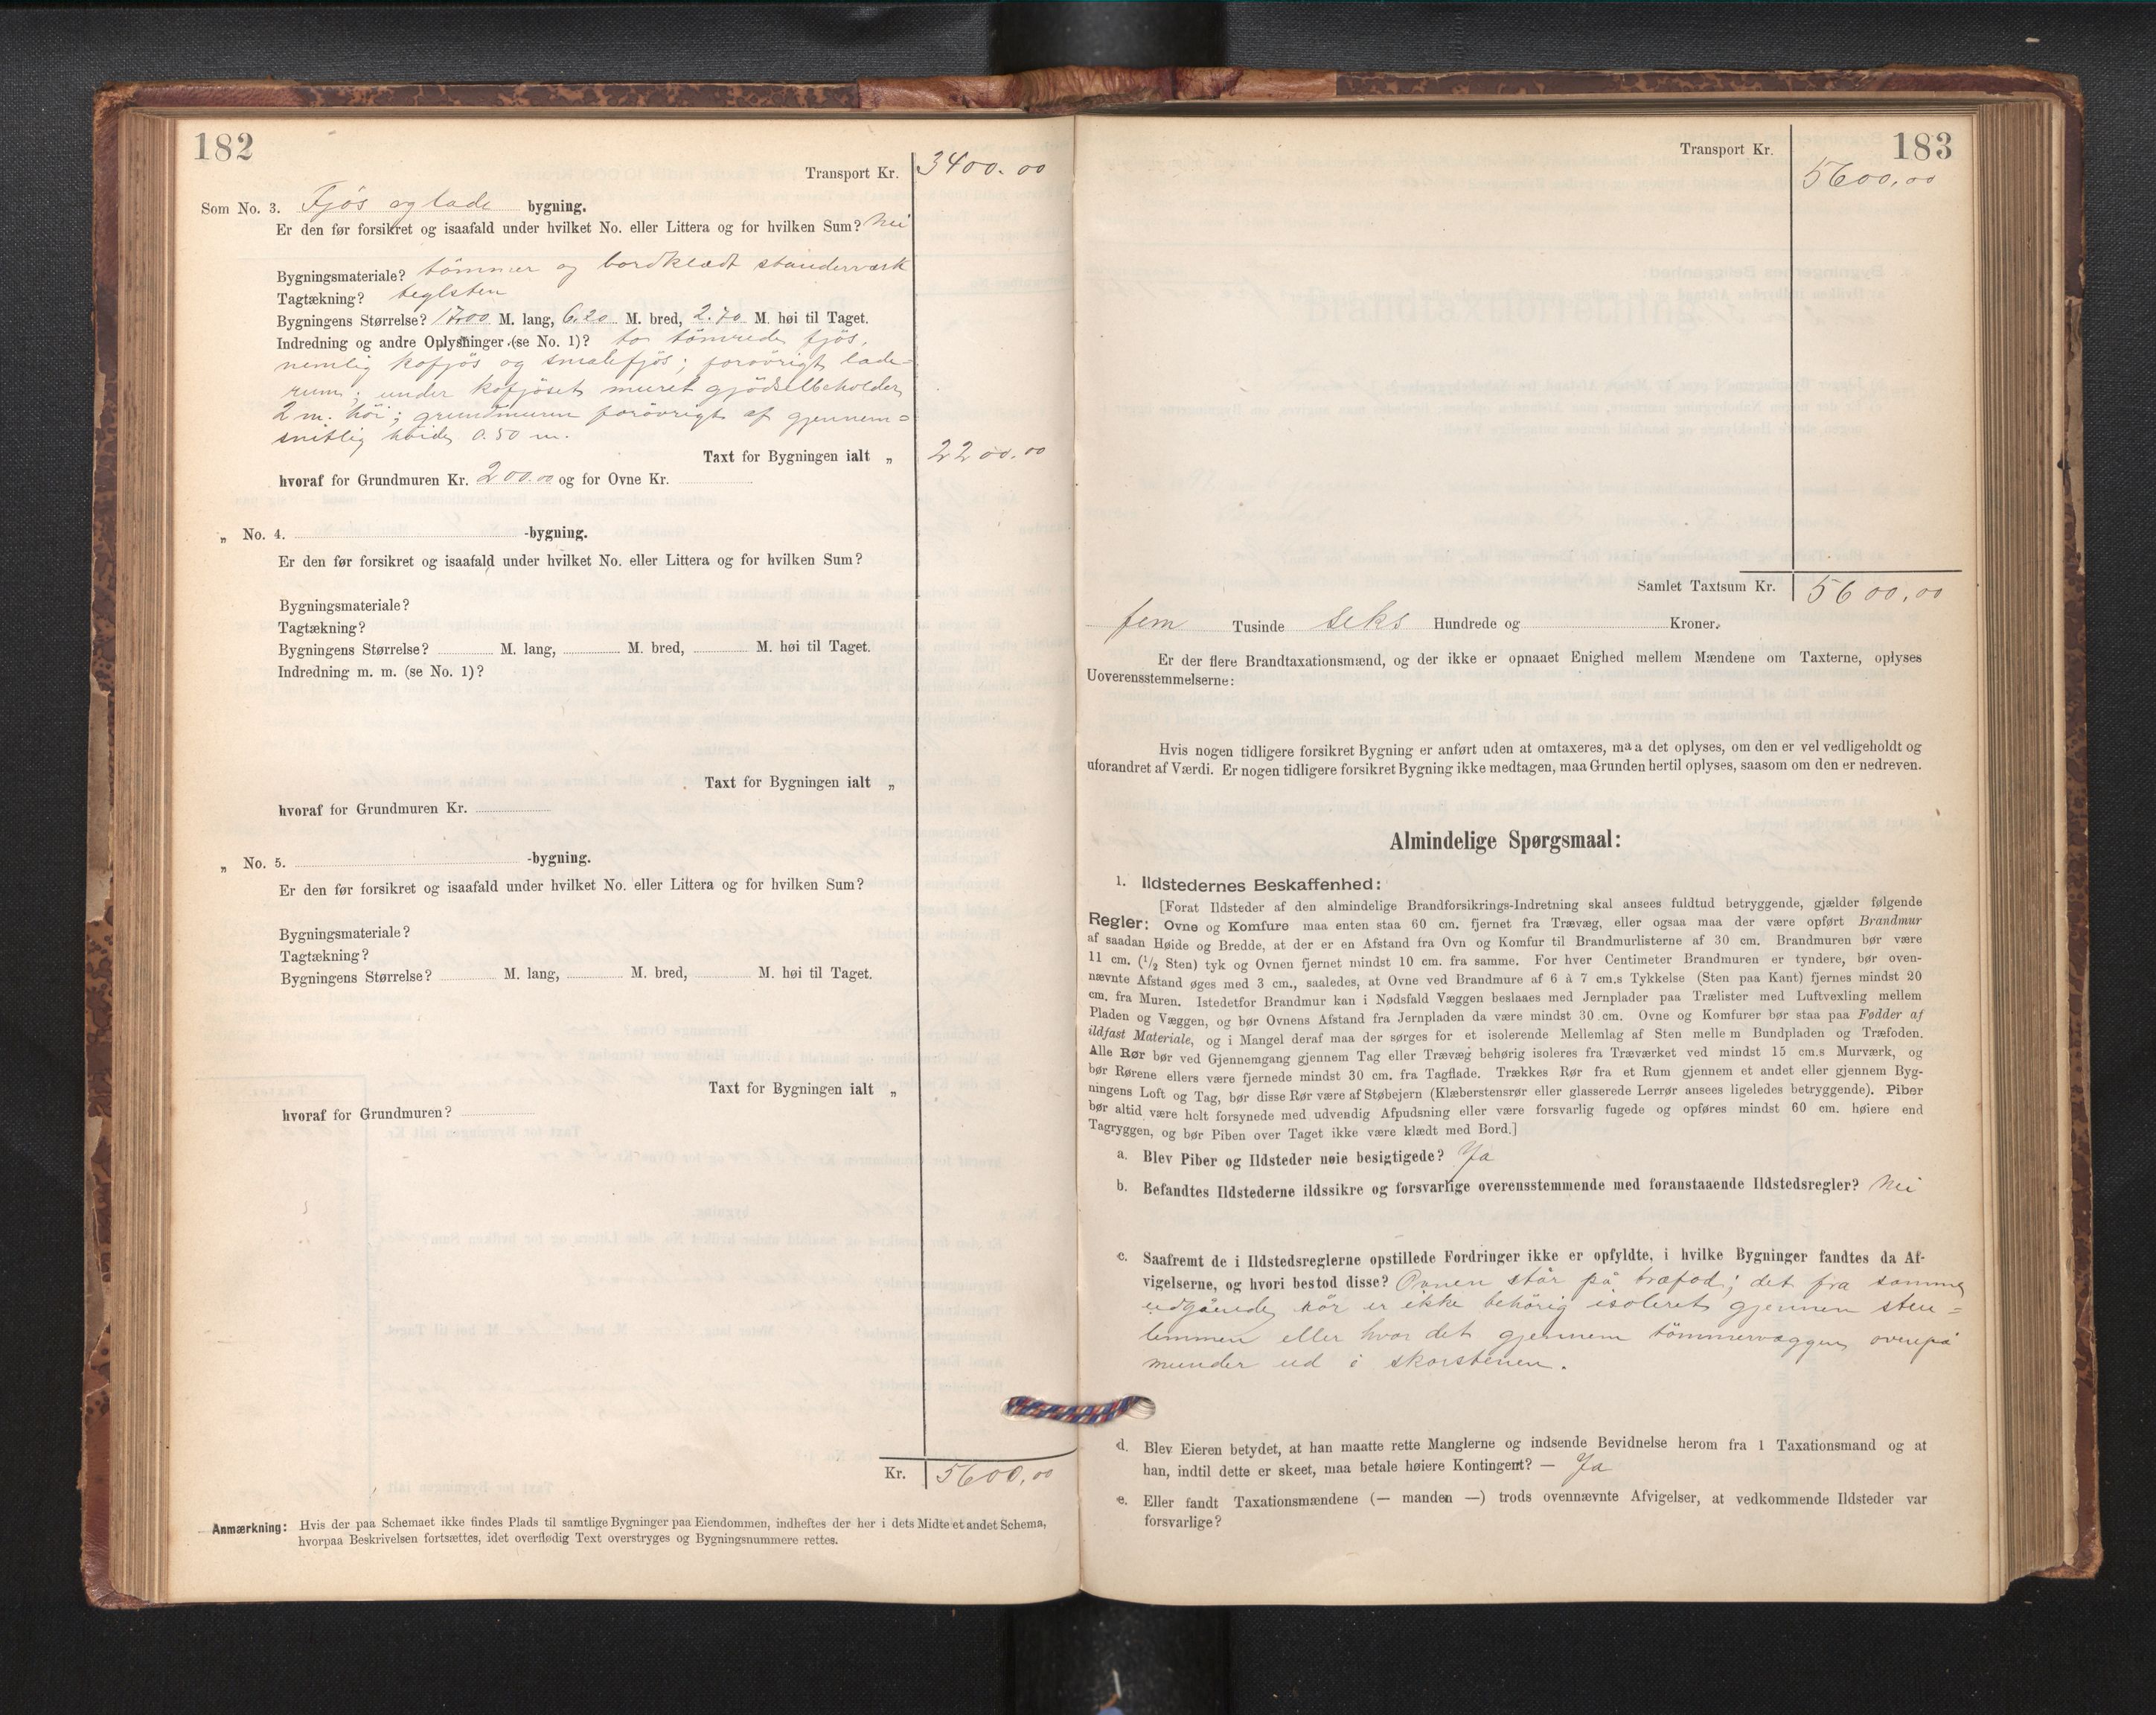 182
Transport Kr. 3400.00
Som No. 3. Fjös og lade bygning.
Er den før forsikret og isaafald under hvilket No. eller Littera og for hvilken Sum? Nei
Bygningsmateriale? tömmer og bordklædt standerværk
Tagtækning? teglsten
Bygningens Størrelse? 17.00 M. lang, 6.20 M. bred, 2.70 M. høi til Taget.
Indredning og andre Oplysninger (se No. 1)? to tömrede fjös,
nemlig kofjös og smalefjös; forövrigt lade-
rum; under kofjöset muret gjödselbeholder
2 m. höi; grundmuren forövrigt af gjennem=
snitlig höide 0.50 m.
Taxt for Bygningen ialt „ 2200.00
hvoraf for Grundmuren Kr. 200.00 og for Ovne Kr.
„ No. 4. -bygning.
Er den før forsikret og isaafald under hvilket No. eller Littera og for hvilken Sum?
Bygningsmateriale?
Tagtækning?
Bygningens Størrelse? M. lang, M. bred, M. høi til Taget.
Indredning m. m. (se No. 1)?
Taxt for Bygningen ialt „
hvoraf for Grundmuren Kr.
„ No. 5. -bygning.
Er den før forsikret og isaafald under hvilket No. eller Littera og for hvilken Sum?
Bygningsmateriale?
Tagtækning?
Bygningens Størrelse? M. lang, M. bred, M. høi til Taget.
Taxt for Bygningen ialt „
hvoraf for Grundmuren?
Kr. 5600.00
Anmærkning: Hvis der paa Schemaet ikke findes Plads til samtlige Bygninger paa Eiendommen, indheftes der her i dets Midte et andet Schema,
hvorpaa Beskrivelsen fortsættes, idet overflødig Text overstryges og Bygningsnummere rettes.
183
Transport Kr. 5600.00
Samlet Taxtsum Kr. 5600.00
fem Tusinde seks Hundrede og Kroner.
Er der flere Brandtaxationsmænd, og der ikke er opnaaet Enighed mellem Mændene om Taxterne, oplyses
Uoverensstemmelserne:
Hvis nogen tidligere forsikret Bygning er anført uden at omtaxeres, maa det oplyses, om den er vel vedligeholdt og
uforandret af Værdi. Er nogen tidligere forsikret Bygning ikke medtagen, maa Grunden hertil oplyses, saasom om den er nedreven.
Almindelige Spørgsmaal:
1. Ildstedernes Beskaffenhed:
[Forat Ildsteder af den almindelige Brandforsikrings-Indretning skal ansees fuldtud betryggende, gjælder følgende
Regler: Ovne og Komfure maa enten staa 60 cm. fjernet fra Trævæg, eller ogsaa maa der være opført Brandmur
af saadan Høide og Bredde, at der er en Afstand fra Ovn og Komfur til Brandmurlisterne af 30 cm. Brandmuren bør være
11 cm. (1/2 Sten) tyk og Ovnen fjernet mindst 10 cm. fra samme. For hver Centimeter Brandmuren er tyndere, bør oven-
nævnte Afstand øges med 3 cm., saaledes, at Ovne ved Brandmure af 6 à 7 cm.s Tykkelse (Sten paa Kant) fjernes mindst 20
cm. fra Muren. Istedetfor Brandmur kan i Nødsfald Væggen beslaaes med Jernplader paa Trælister med Luftvexling mellem
Pladen og Væggen, og bør Ovnens Afstand fra Jernpladen da være mindst 30 cm. Ovne og Komfurer bør staa paa Fødder af
ildfast Materiale, og i Mangel deraf maa der sørges for et isolerende Mellemlag af Sten mellem Bundpladen og Træfoden.
Alle Rør bør ved Gjennemgang gjennem Tag eller Trævæg behørig isoleres fra Træværket ved mindst 15 cm.s Murværk, og
bør Rørene ellers være fjernede mindst 30 cm. fra Tagflade. Trækkes Rør fra et Rum gjennem et andet eller gjennem Byg-
ningens Loft og Tag, bør disse Rør være af Støbejern (Klæberstensrør eller glasserede Lerrør ansees ligeledes betryggende). Piber
bør altid være helt forsynede med udvendig Afpudsning eller være forsvarlig fugede og opføres mindst 60 cm. høiere end
Tagryggen, og bør Piben over Taget ikke være klædt med Bord.]
a. Blev Piber og Ildsteder nøie besigtigede? Ja
b. Befandtes Ildstederne ildssikre og forsvarlige overensstemmende med foranstaaende Ildstedsregler? Nei
c. Saafremt de i Ildstedsreglerne opstillede Fordringer ikke er opfyldte, i hvilke Bygninger fandtes da Af-
vigelserne, og hvori bestod disse? Ovnen står på træfod; det fra samme
udgående rör er ikke behörig isoleret gjennem sten=
lemmen eller hvor det gjennem tömmervæggen ovenpå
munder ud i skorstenen.
d. Blev Eieren betydet, at han maatte rette Manglerne og indsende Bevidnelse herom fra 1 Taxationsmand og at
han, indtil dette er skeet, maa betale høiere Kontingent? — Ja
e. Eller fandt Taxationsmændene (— manden —) trods ovennævnte Afvigelser, at vedkommende Ildsteder var
forsvarlige?